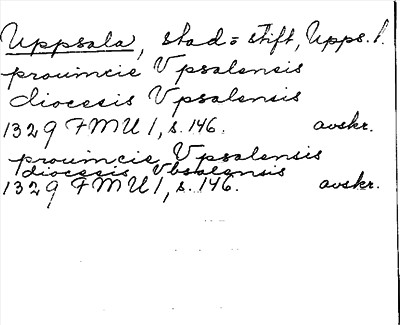 Uppsala, stad = stift, Upps. l.
prouincie Vpsalensis
diocesis Vpsalensis
1329 FMU 1, s. 146. avskr.
prouincie Vpsalensis
diocesis Vbsalensis
1329 FMU 1, s. 146. avskr.